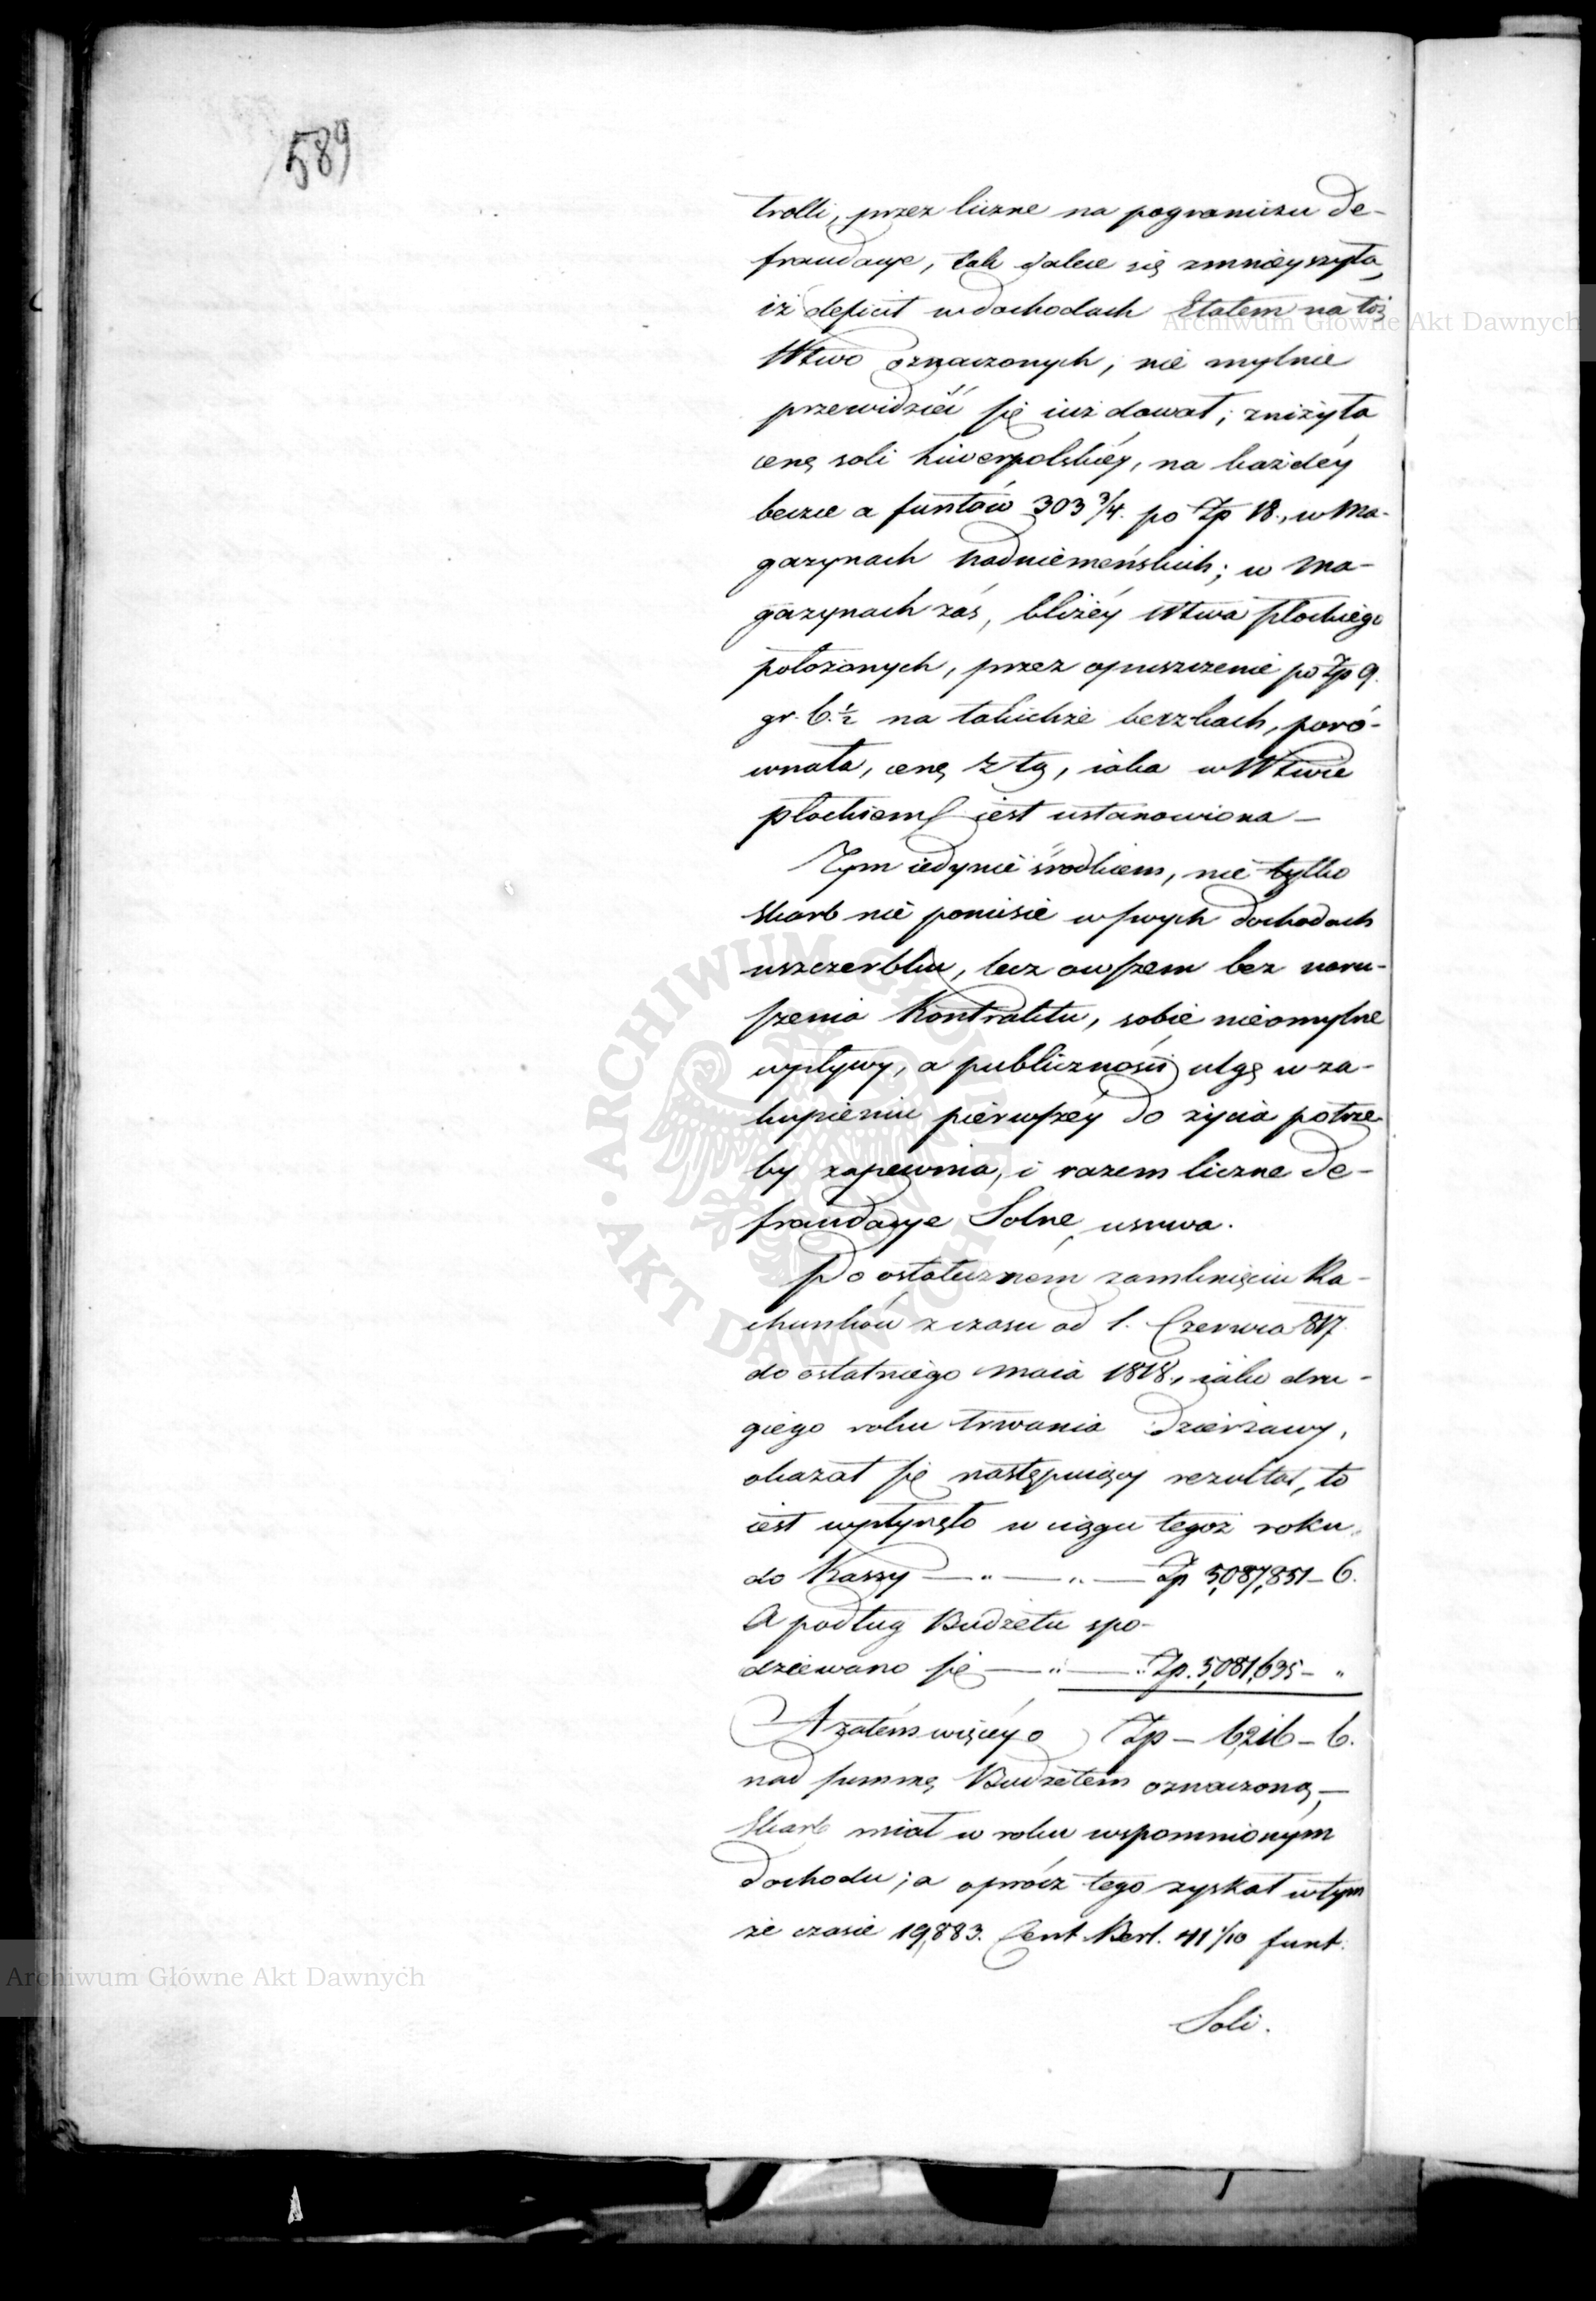 589
trolli, przez liczne na pograniczu de-
fraudacye, tak dalece się zmnieyszyła,
iż deficit w dochodach Etatem na toż
Wtwo oznaczonych, nie mylnie
przewidzieć się iuż dawał; zniżyła
cenę soli Liwerpolskiéy, na każdéy
beczce a funtów 303 3/4. po Zp 18., w Ma-
gazynach Nadniemeńskich; w Ma-
gazynach zaś, bliżéy Wtwa Płockiego
położonych, przez opuszczenie po Zp 9.
gr. 6.½ na takichże beczkach, poró-
wnała, cenę z tą, iaka w Wtwie
Płockiem iest ustanowiona –
Tym iedynie środkiem, nie tylko
Skarb nie poniesie w swych dochodach
uszczerbku, lecz owszem bez naru-
szenia Kontraktu, sobie nieomylne
wpływy, a publiczności ulgę w za-
kupieniu pierwszéy do życia potrze-
by zapewnia, i razem liczne de-
fraudacye Solne, usuwa.
Po ostatecznem zamknięciu Ra-
chunków z czasu od 1. Czerwca 817.
do ostatniego Maia 1818., iako dru-
giego roku trwania Dzierżawy,
okazał się następuiący rezultat, to
iest wpłynęło w ciągu tegoż roku
do Kassy — „ — „ — Zp 5,087,851 – 6.
A podług Budżetu spo-
dziewano się — „ — „ Zp. 5,081,635 – „
A zatém więcéy o Zp – 6,216 – 6.
nad summę Budżetem oznaczoną, –
Skarb miał w roku wspomnionym
dochodu; a oprócz tego zyskał w tym
że czasie 19,883. Cent. Berl. 41 1/10 funt.
Soli.
Archiwum Główne Akt Dawnych
ARCHIWUM GŁÓWNE · AKT DAWNYCH ·
Archiwum Główne Akt Dawnych